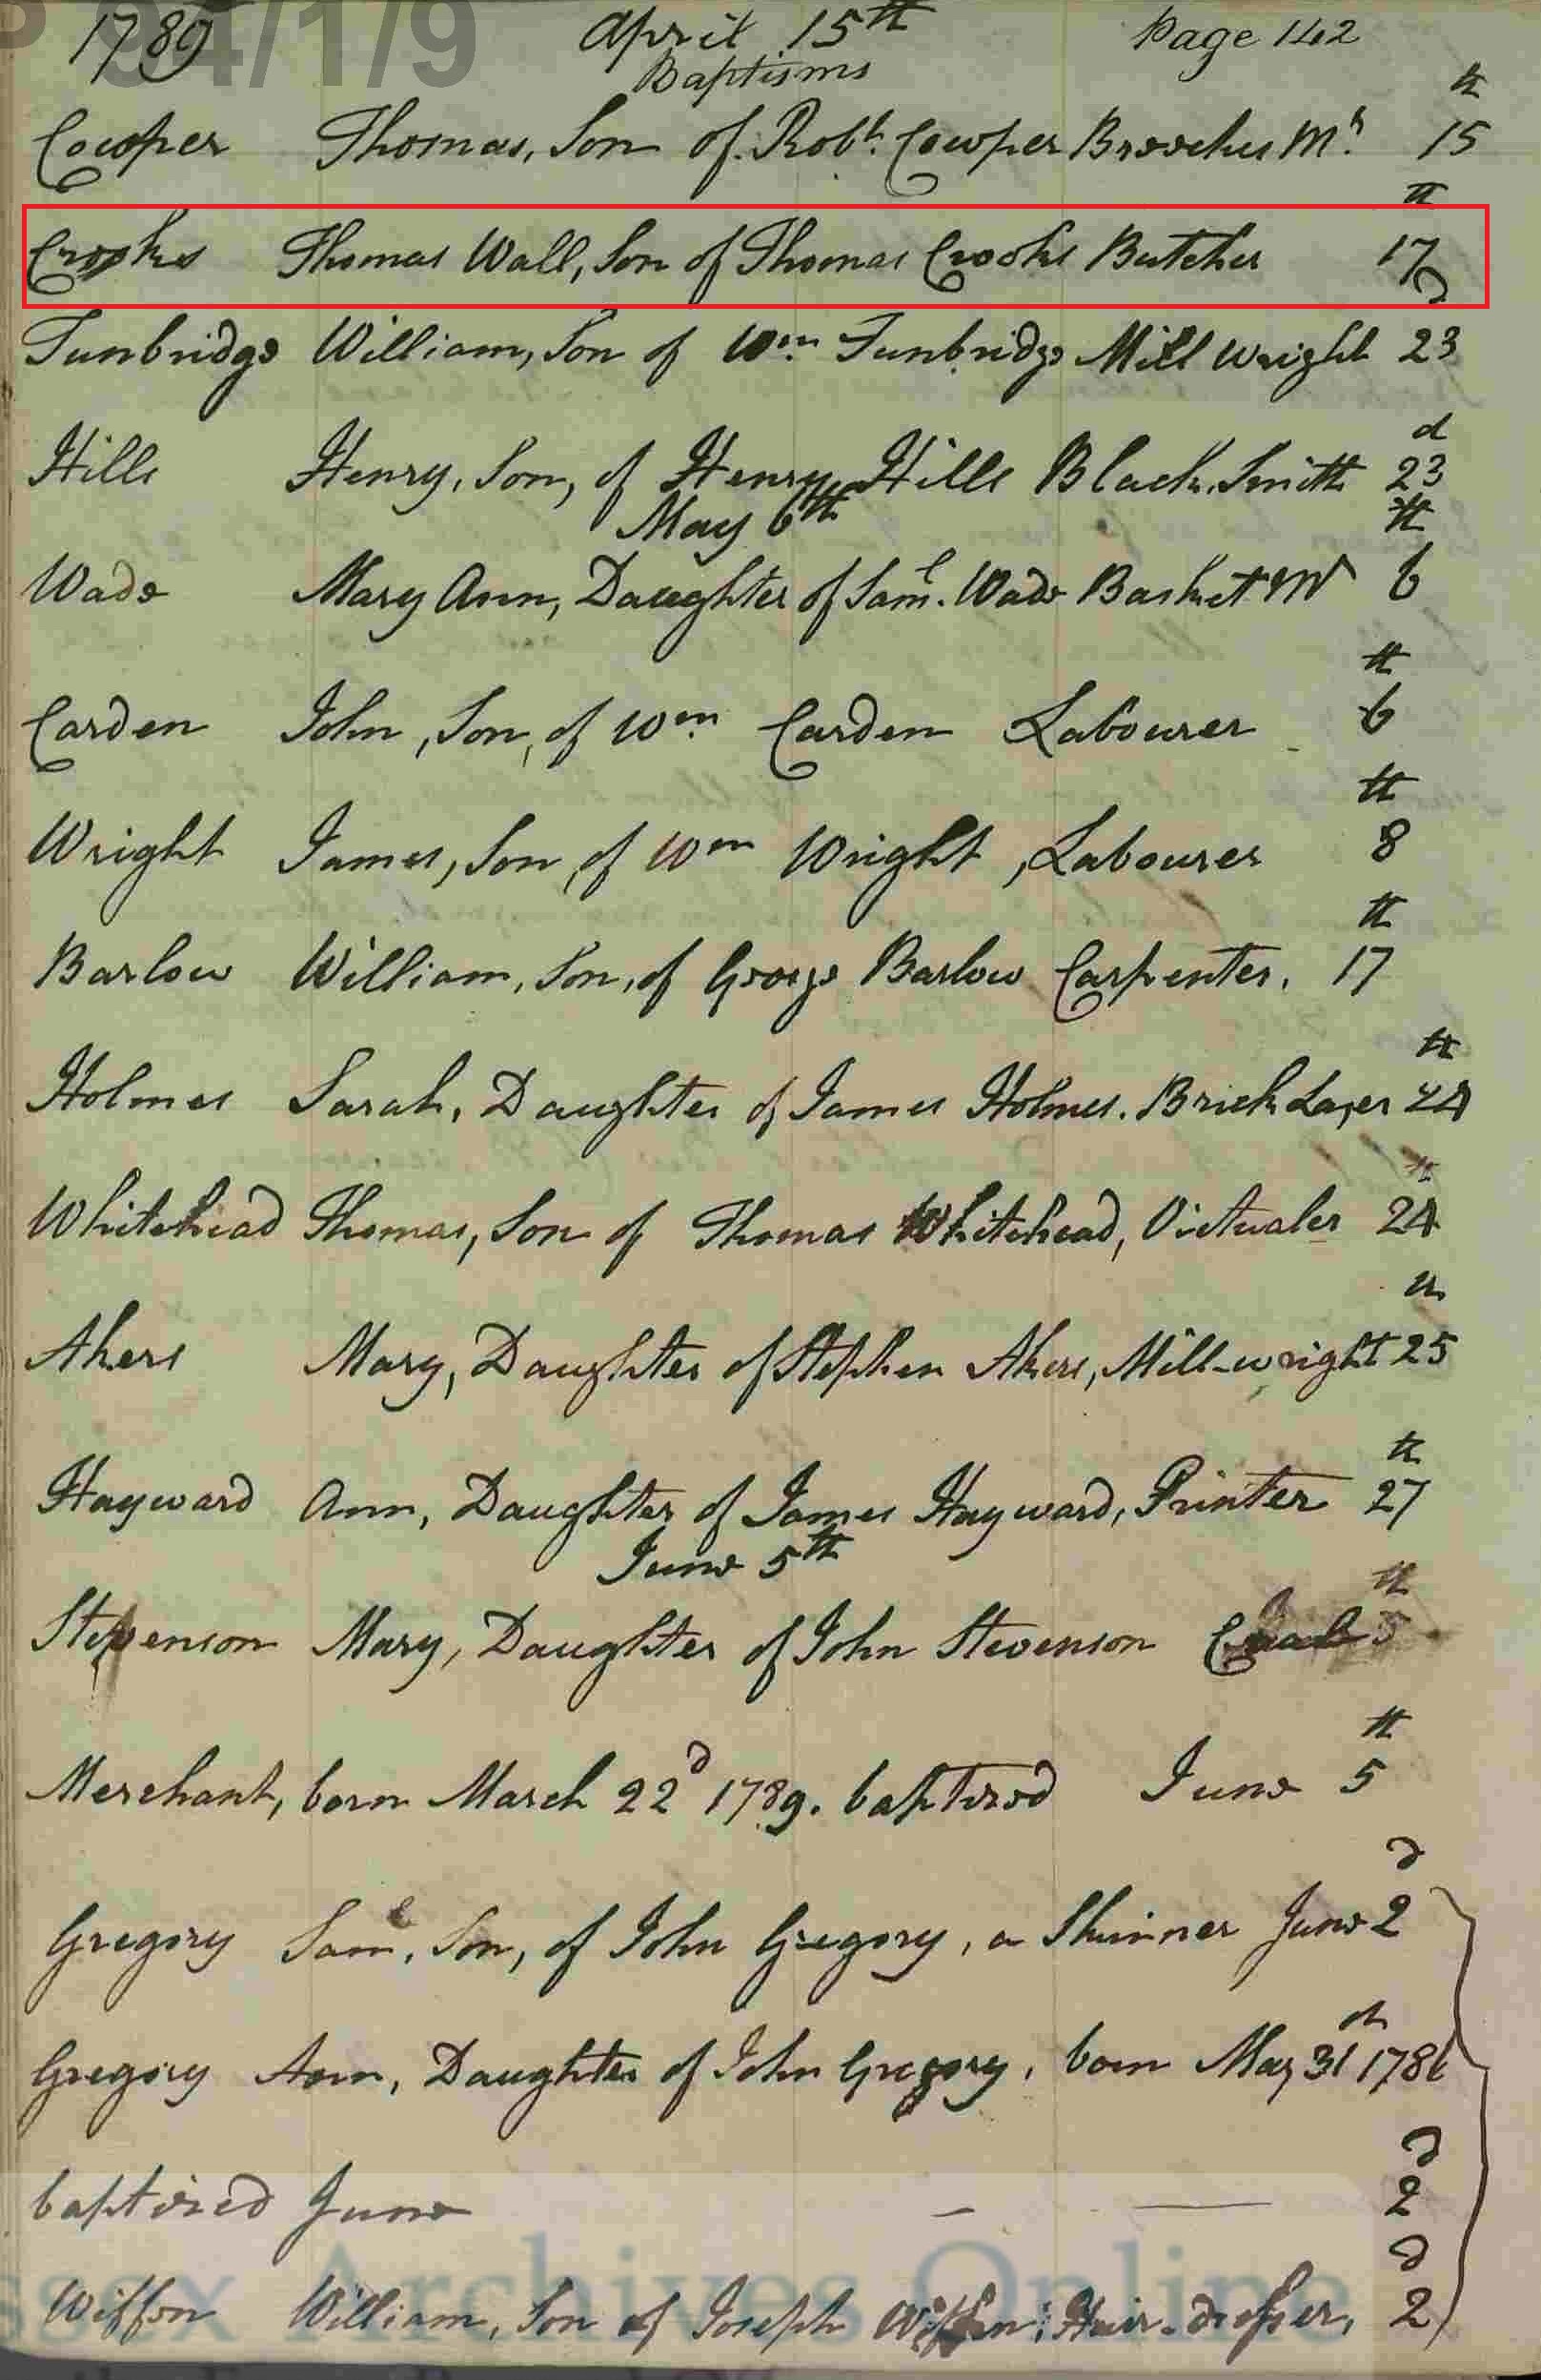 P 94/1/9
1789 April 15th Page 142
Baptisms
Cowper Thomas, Son of Robt. Cowper Breeches Mr. 15th
Crooks Thomas Wall, Son of Thomas Crooks Butcher 17th
Tunbridge William, Son of Wm. Tunbridge Mill Wright 23d
Hills Henry, Son, of Henry Hills Black Smith 23d
May 6th
Wade Mary Ann, Daughter of Saml. Wade Basket Mr 6th
Carden John, Son, of Wm. Carden Labourer 6th
Wright James, Son, of Wm Wright, Labourer 8th
Barlow William, Son, of George Barlow Carpenter. 17th
Holmes Sarah, Daughter of James Holmes. Brick Layer 24th
Whitehead Thomas, Son of Thomas Whitehead, Victualer 24th
Akers Mary, Daughter of Stephen Akers, Mill-wright 25th
Hayward Ann, Daughter of James Hayward, Printer 27th
June 5th
Stevenson Mary, Daughter of John Stevenson 5th
Merchant, born March 22d 1789. baptized June 5th
Gregory Saml, Son, of John Gregory, a Skinner June 2d
Gregory Ann, Daughter of John Gregory, born May 31st 1786
baptized June — — 2d
Wiffen William, Son of Joseph Wiffen, Hair-dresser, 2d
ssex Archives Online